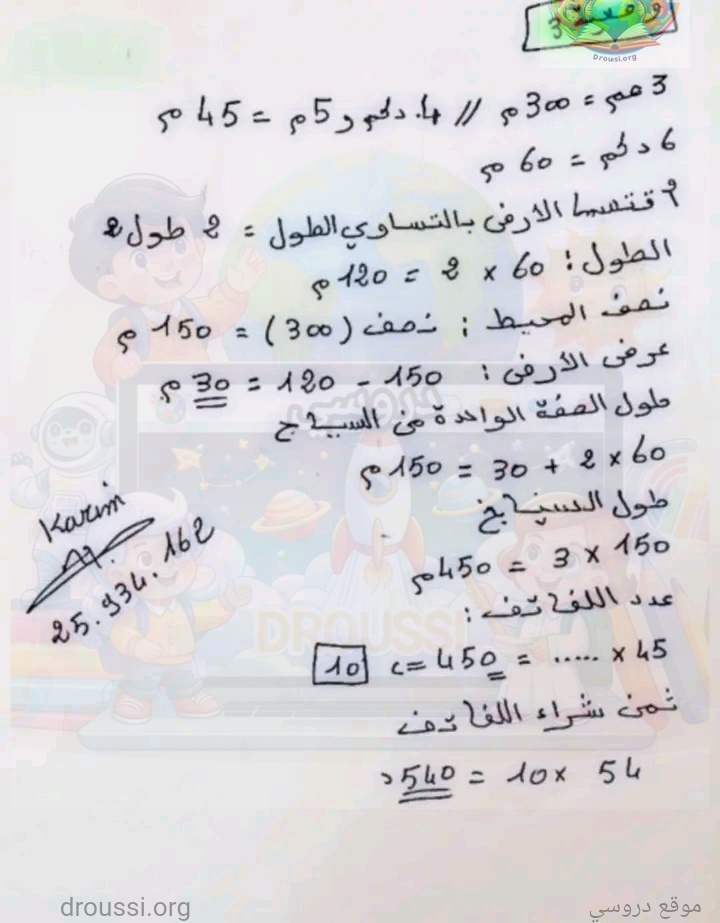 وضعية 3
Drousi.org
3 هم = 300 م // 4 دكم و 5 م = 45 م
6 دكم = 60 م
الأرض بالتساوي الطول = 2 طول
الطول : 60 × 2 = 120 م
نصف المحيط : نصف (300) = 150 م
عرض الأرض : 150 - 120 = 30 م
طول الصفة الواحدة من السياج
60 × 2 + 30 = 150 م
طول السياج
150 × 3 = 450 م
عدد اللفائف :
45 × ..... = 450 => 10
ثمن شراء اللفائف
54 × 10 = 540 د
Karim
25.934.162
دروسي
DROUSSI
droussi.org
موقع دروسي